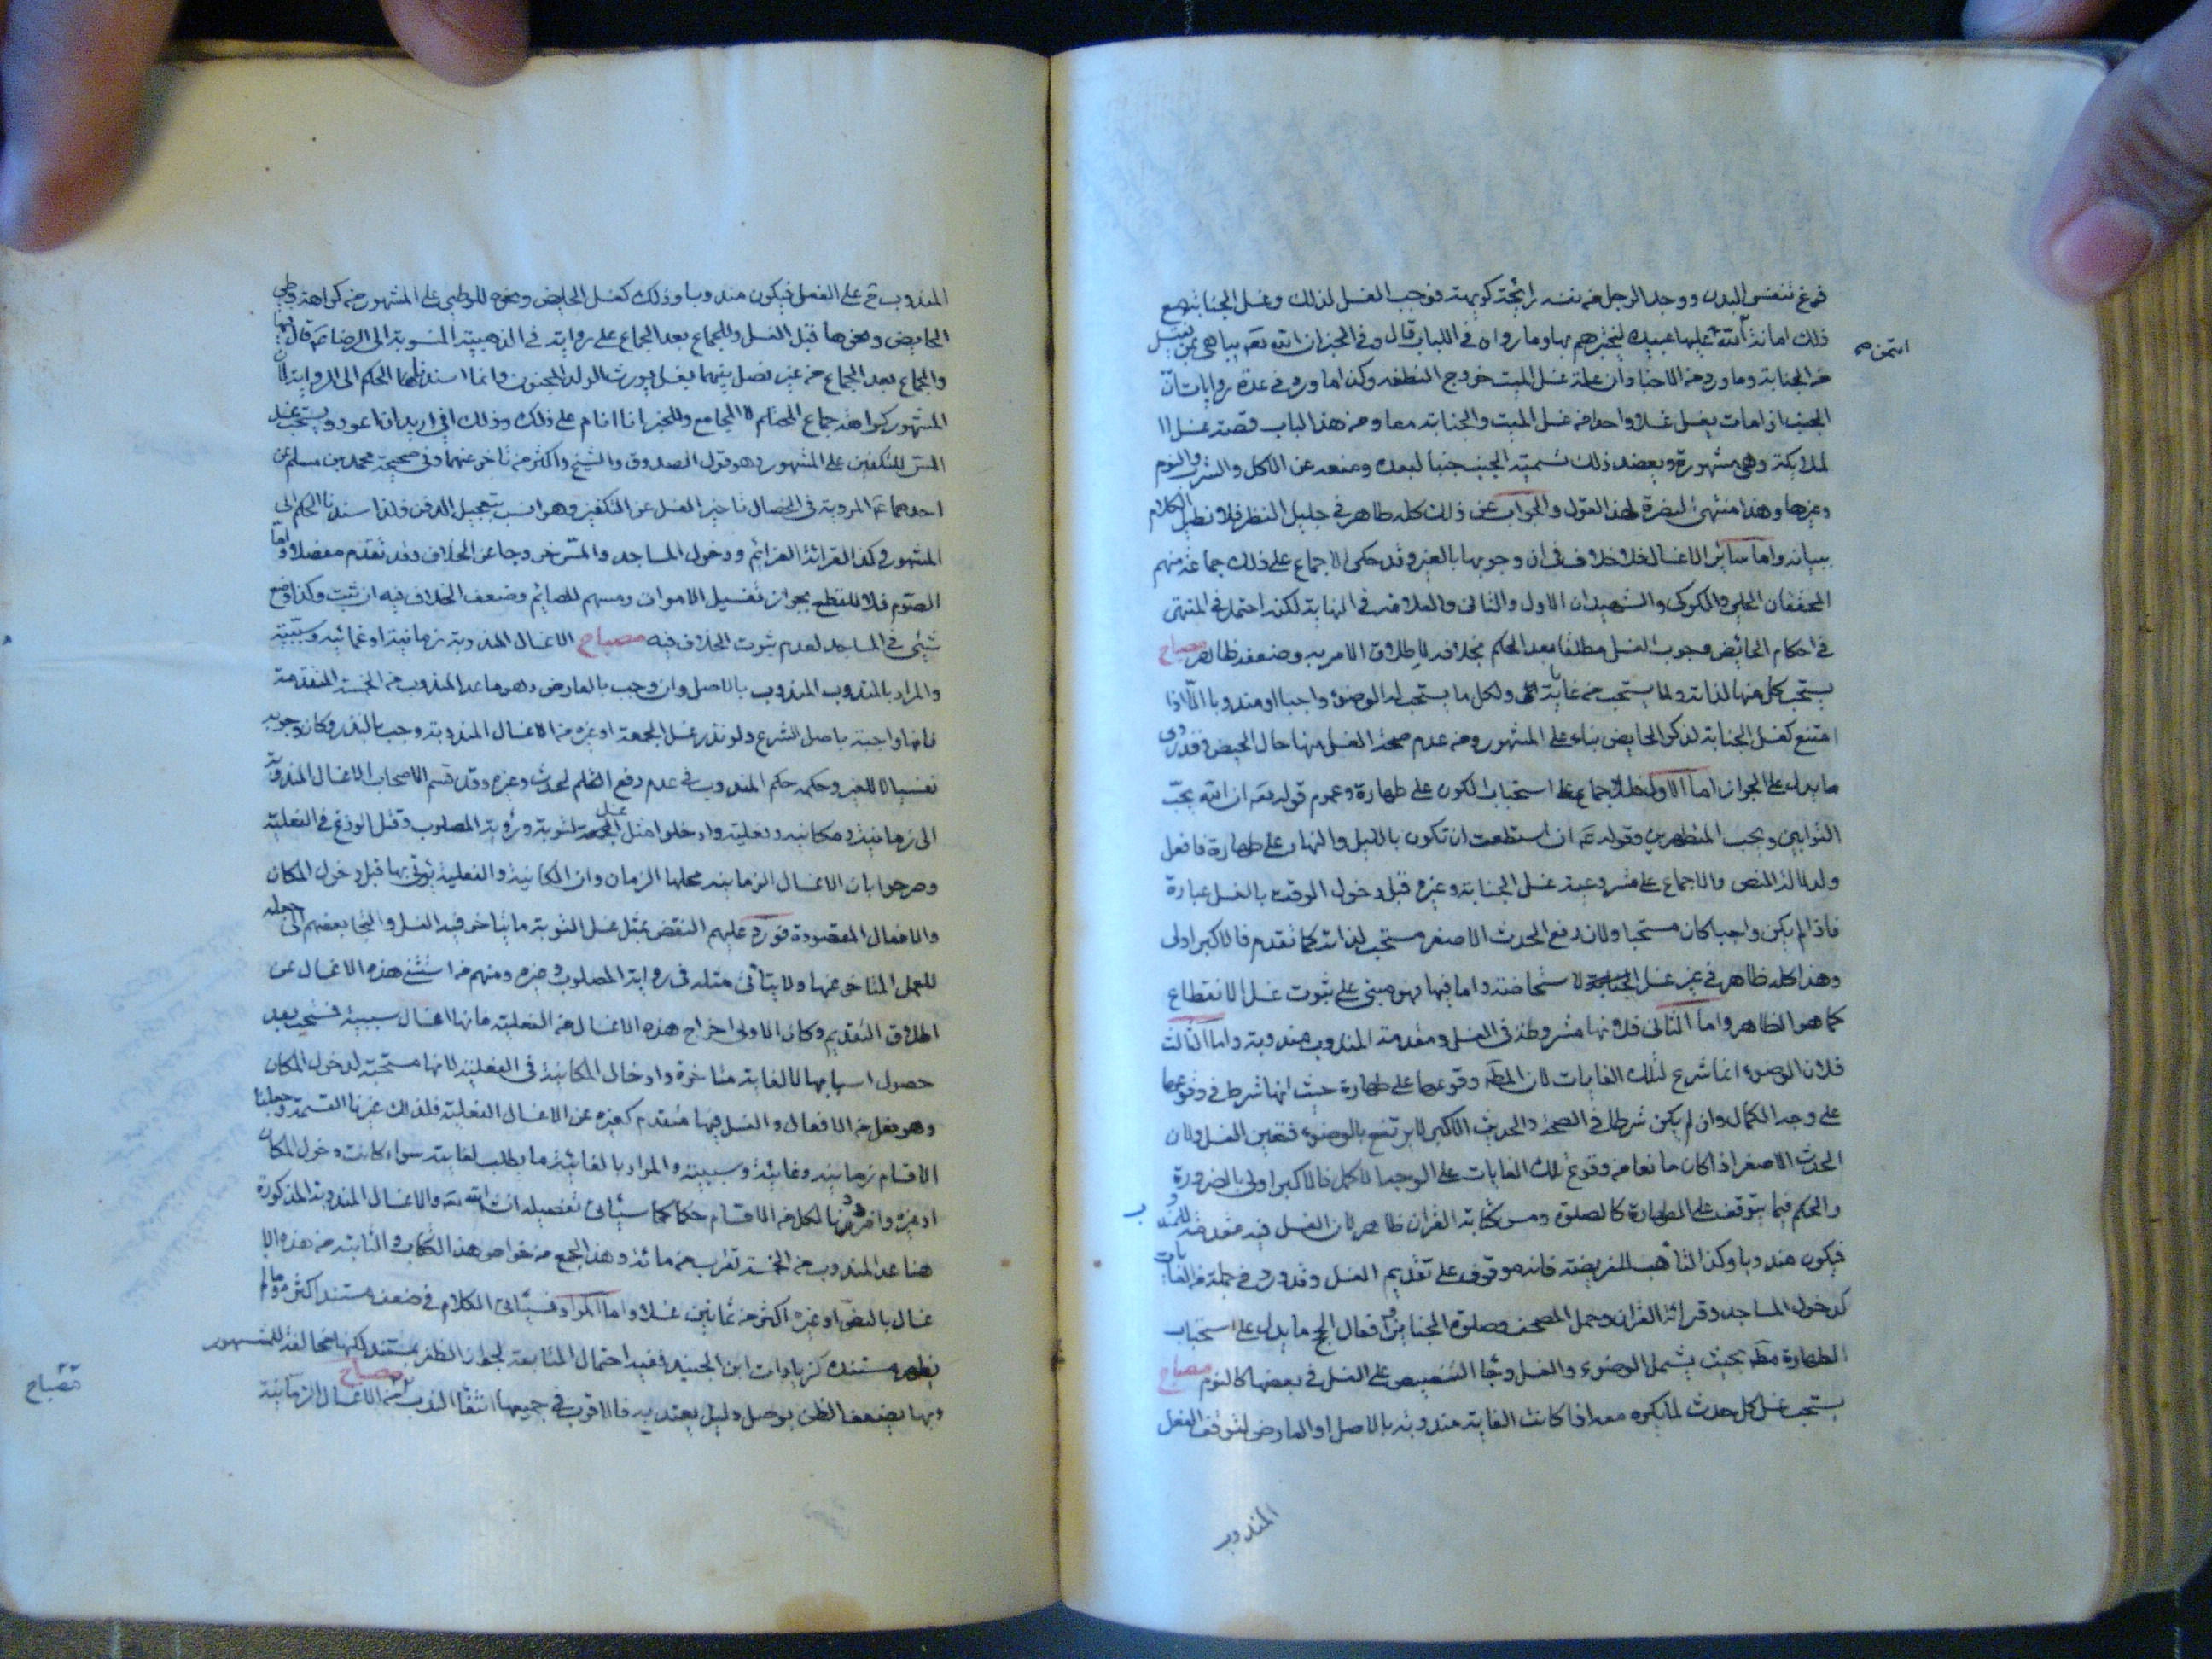 فرغ تنفس البدن ووجد الرجل من نفسه رائحة كريهة فوجب الغسل لذلك وغسل الجنابة مع
ذلك امانة الله عليها عبيده ليختبرهم بها وما رواه في اللباب قال وفي الخبر ان الله تعه يباهي بمن يغتسل
ائتمن صح
من الجنابة وما ورد من الاخبار ان علة غسل الميت خروج النطفه وكذا ما ورد في عدة روايات ان
الجنب اذا مات يغسل غسلا واحدا من غسل الميت والجنابة معا ومن هذا الباب قصة غسل ا
لملايكة وهي مشهورة ويعضد ذلك تسمية الجنب جنبا لبعده ومنعه عن الاكل والشرب والنوم
وغيرها وهذا منتهى النصرة لهذا القول والجواب عن ذلك كله ظاهر في جليل النظر فلا نطيل الكلام
ببيانه واما سائر الاغسال فلا خلاف في ان وجوبها بالغير وقد حكى الاجماع على ذلك جماعة منهم
المحققان الحلي والكركي والشهيدان الاول والثاني والعلامة في النهاية لكنه احتمل في المنتهى
في احكام الحائض وجوب الغسل مطلقا بعد الحكم بخلافه لاطلاق الامر به وضعفه ظاهر مصباح
يستحب كل منها لذاته ولما يستحب من غاياته ولكل ما يستحب له الوضوء واجبا او مندوبا الا اذا
امتنع كغسل الجنابة لذكر الحايض بناء على المشهور من عدم صحة الغسل منها حال الحيض وقد روى
ما يدل على الجواز اما الاول فللاجماع على استحباب الكون على طهارة وعموم قوله تعه ان الله يحب
التوابين ويحب المتطهرين وقوله عه ان استطعت ان تكون بالليل والنهار على طهارة فافعل
ولدلالة النص والاجماع على مشروعية غسل الجنابة وغيره قبل دخول الوقت بالغسل عبارة
فاذا لم يكن واجبا كان مستحبا ولان رفع الحدث الاصغر مستحب لذاته كما تقدم فالاكبر اولى
وهذا كله ظاهر في غير غسل الاستحاضة واما فيها فهو مبني على ثبوت غسل الانقطاع
كما هو الظاهر واما الثاني فلانها مشروطة في الغسل ومقدمة المندوب مندوبة واما الثالث
فلان الوضوء انما شرع لتلك الغايات لان المطه وقوعها على طهارة حيث انها شرط في وقوعها
على وجه الكمال وان لم يكن شرطا في الصحة والحدث الاكبر لا يرتفع بالوضوء فتعين الغسل ولان
الحدث الاصغر اذا كان مانعا من وقوع تلك الغايات على الوجه الاكمل فالاكبر اولى بالضرورة
والحكم فيما يتوقف على الطهارة كالصلوة ومس كتابة القران ظاهر لان الغسل فيه مقدمة للمندو
ب
فيكون مندوبا وكذا التأهب للفريضة فانه موقوف على تقديم الغسل وقد ورد في جملة من الغايات
كدخول المساجد وقرائة القران وحمل المصحف وصلوة الجنايز وافعال الحج ما يدل على استحباب
الطهارة مطه بحيث يشمل الوضوء والغسل وجاء التنصيص على الغسل في بعضها كالنوم مصباح
يستحب غسل كل حدث لما يكره معه اذا كانت الغاية مندوبة بالاصل او العارض لتوقف الفعل
المندوب
المندوب ح على الغسل فيكون مندوبا وذلك كغسل الحايض ونحوه للوطي على المشهور من كراهة وطي
الحايض ونحوها قبل الغسل وللجماع بعد الجماع على رواية في الذهبية المنسوبة الى الرضا عه قال فيها
والجماع بعد الجماع من غير فصل بينهما بغسل يورث الولد الجنون وانما اسندنا الحكم الى الرواية لان
المشهور كراهة جماع المحتلم لا المجامع وللخبر انا انام على ذلك وذلك اني اريد ان اعود ويستحب غسل
المس للتكفين على المشهور وهو قول الصدوق والشيخ واكثر من تاخر عنهما وفي صحيحة محمد بن مسلم عن
احدهما عه المروية في الخصال تاخير الغسل عن التكفين وهو انسب بتعجيل الدفن فلذا اسندنا الحكم الى
المشهور وكذا لقرائة العزائم ودخول المساجد والمس خروجا عن الخلاف وقد تقدم مفصلا واما
الصوم فلا للقطع بجواز تغسيل الاموات ومسهم للصائم وضعف الخلاف فيه ان ثبت وكذا وضع
شيئ في المساجد لعدم ثبوت الخلاف فيه مصباح الاغسال المندوبة زمانية او غائية وسببية
والمراد بالمندوب المندوب بالاصل وان وجب بالعارض وهو ما عدا المندوب من الخمسة المتقدمة
فانها واجبة باصل الشرع ولو نذر غسل الجمعة او غيره من الاغسال المندوبة وجب بالنذر وكان وجوبه
نفسيا لا للغير وحكمه حكم المندوب في عدم رفع الحدث وغيره وقد قسم الاصحاب الاغسال المندوبة
الى زمانية ومكانية وفعلية وادخلوا مثل غسل التوبة ورؤية المصلوب وقتل الوزغ في الفعلية
وصرحوا بان الاغسال الزمانية محلها الزمان وان المكانية والفعلية يؤتى بها قبل دخول المكان
والافعال المقصودة فورد عليهم النقض بمثل غسل التوبة مما يتاخر فيه الغسل والتجا بعضهم الى جعله
للعمل المتاخر عنها ولا يتأتى مثله في رواية المصلوب وغيره ومنهم من استثنى هذه الاغسال عن
اطلاق التقديم وكان الاولى اخراج هذه الاغسال من الفعلية فانها اغسال سببية فتستحب بعد
حصول اسبابها لا لغاية متاخرة وادخال المكانية في الفعلية لانها مستحبة لدخول المكان
وهو فعل من الافعال والغسل فيها متقدم كغيره من الاغسال الفعلية فلذلك غيرنا القسمة وجعلنا
الاقسام زمانية وغائية وسببية والمراد بالغائية ما يطلب لغاية سواء كانت دخول المكان
او غيره وافردنا لكل من الاقسام حكما كما سيأتى تفصيله انشاء الله تعه والاغسال المندوبة المذكورة
هنا عدا المندوب من الخمسة تقرب من مائة وهذا الجمع من خواص هذا الكتاب والثابتة من هذه الا
غسال بالنص او غيره اكثر من ثمانين غسلا واما المراد فسيأتى الكلام في ضعف مستند اكثره وما لم
يظهر مستنده كزيادات ابن الجنيد ففيه احتمال المتابعة لجواز الظفر بمستند لكنها مخالفة للمشهور
وبها يضعف الظن بوصل دليل يعتد به فالاقرب في جميعها انتفاء الندب مصباح من الاغسال الزمانية
مصباح